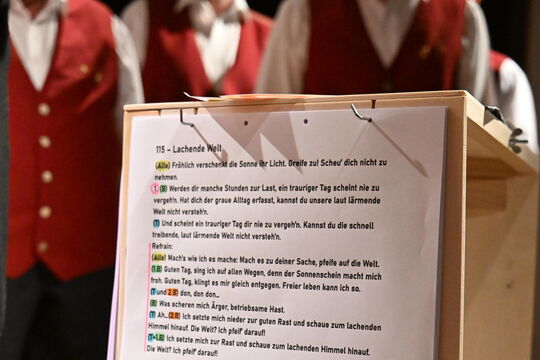 115 – Lachende Welt
(Alle) Fröhlich verschenkt die Sonne ihr Licht. Greife zu! Scheu' dich nicht zu
nehmen.
1. (B) Werden dir manche Stunden zur Last, ein trauriger Tag scheint nie zu
vergeh'n. Hat dich der graue Alltag erfasst, kannst du unsere laut lärmende
Welt nicht versteh'n.
(T) Und scheint ein trauriger Tag dir nie zu vergeh'n. Kannst du die schnell
treibende, laut lärmende Welt nicht versteh'n.
Refrain:
(Alle) Mach's wie ich es mache: Mach es zu deiner Sache, pfeife auf die Welt.
(1.B) Guten Tag, sing ich auf allen Wegen, denn der Sonnenschein macht mich
froh. Guten Tag, klingt es mir gleich entgegen. Freier leben kann ich so.
(T und 2.B) don, don, don...
(B) Was scheren mich Ärger, betriebsame Hast.
(T) Ah...(2.B) Ich setzte mich nieder zur guten Rast und schaue zum lachenden
Himmel hinauf. Die Welt? Ich pfeif' darauf!
(T+1.B) Ich setzte mich zur Rast und schaue zum lachenden Himmel hinauf.
Die Welt? Ich pfeif darauf!